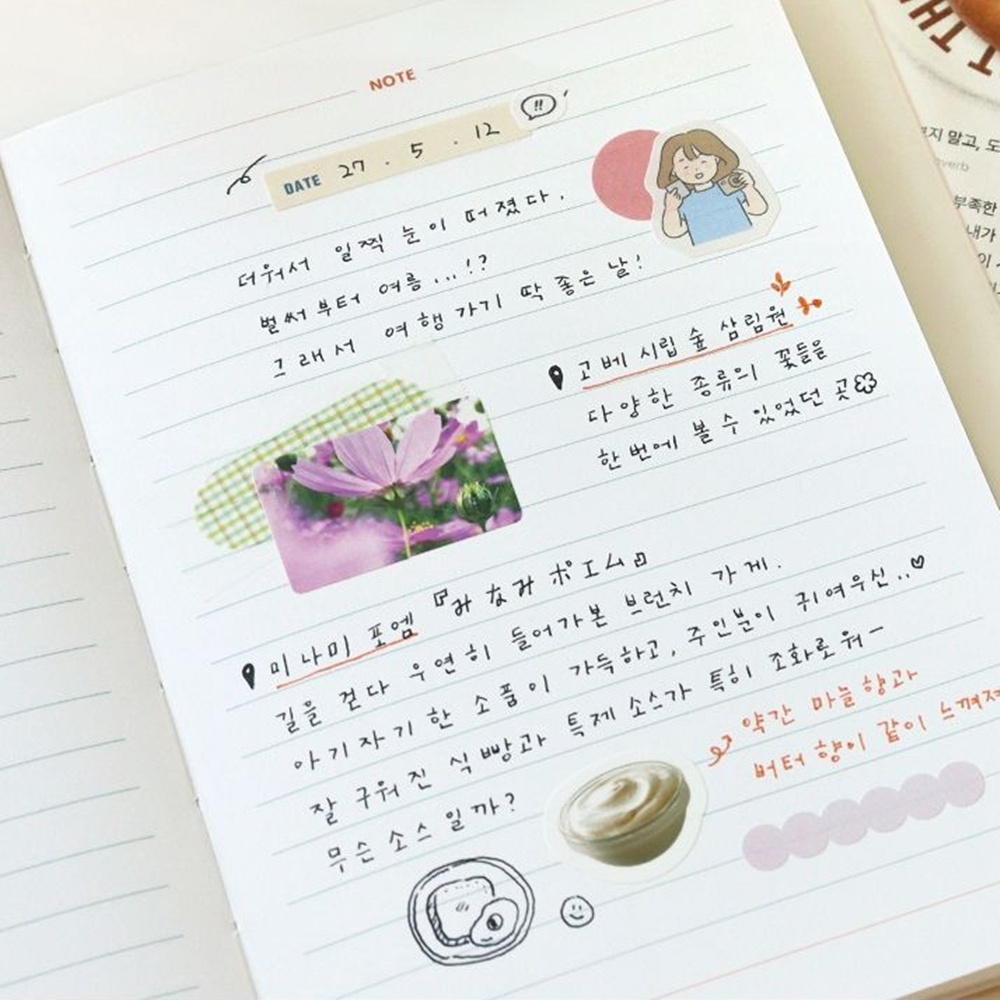 NOTE
DATE 27 . 5 . 12
!!
더워서 일찍 눈이 떠졌다.
벌써부터 여름...!?
그래서 여행가기 딱 좋은 날!
고베 시립 숲 삼림원
다양한 종류의 꽃들을
한번에 볼 수 있었던 곳
미나미 포엠 『みなみポエム』
길을 걷다 우연히 들어가본 브런치 가게.
아기자기한 소품이 가득하고, 주인분이 귀여우신..♡
잘 구워진 식빵과 특제 소스가 특히 조화로워-
무슨 소스일까?
약간 마늘향과
버터향이 같이 느껴져
지 말고, 도
verb
부족한
내가